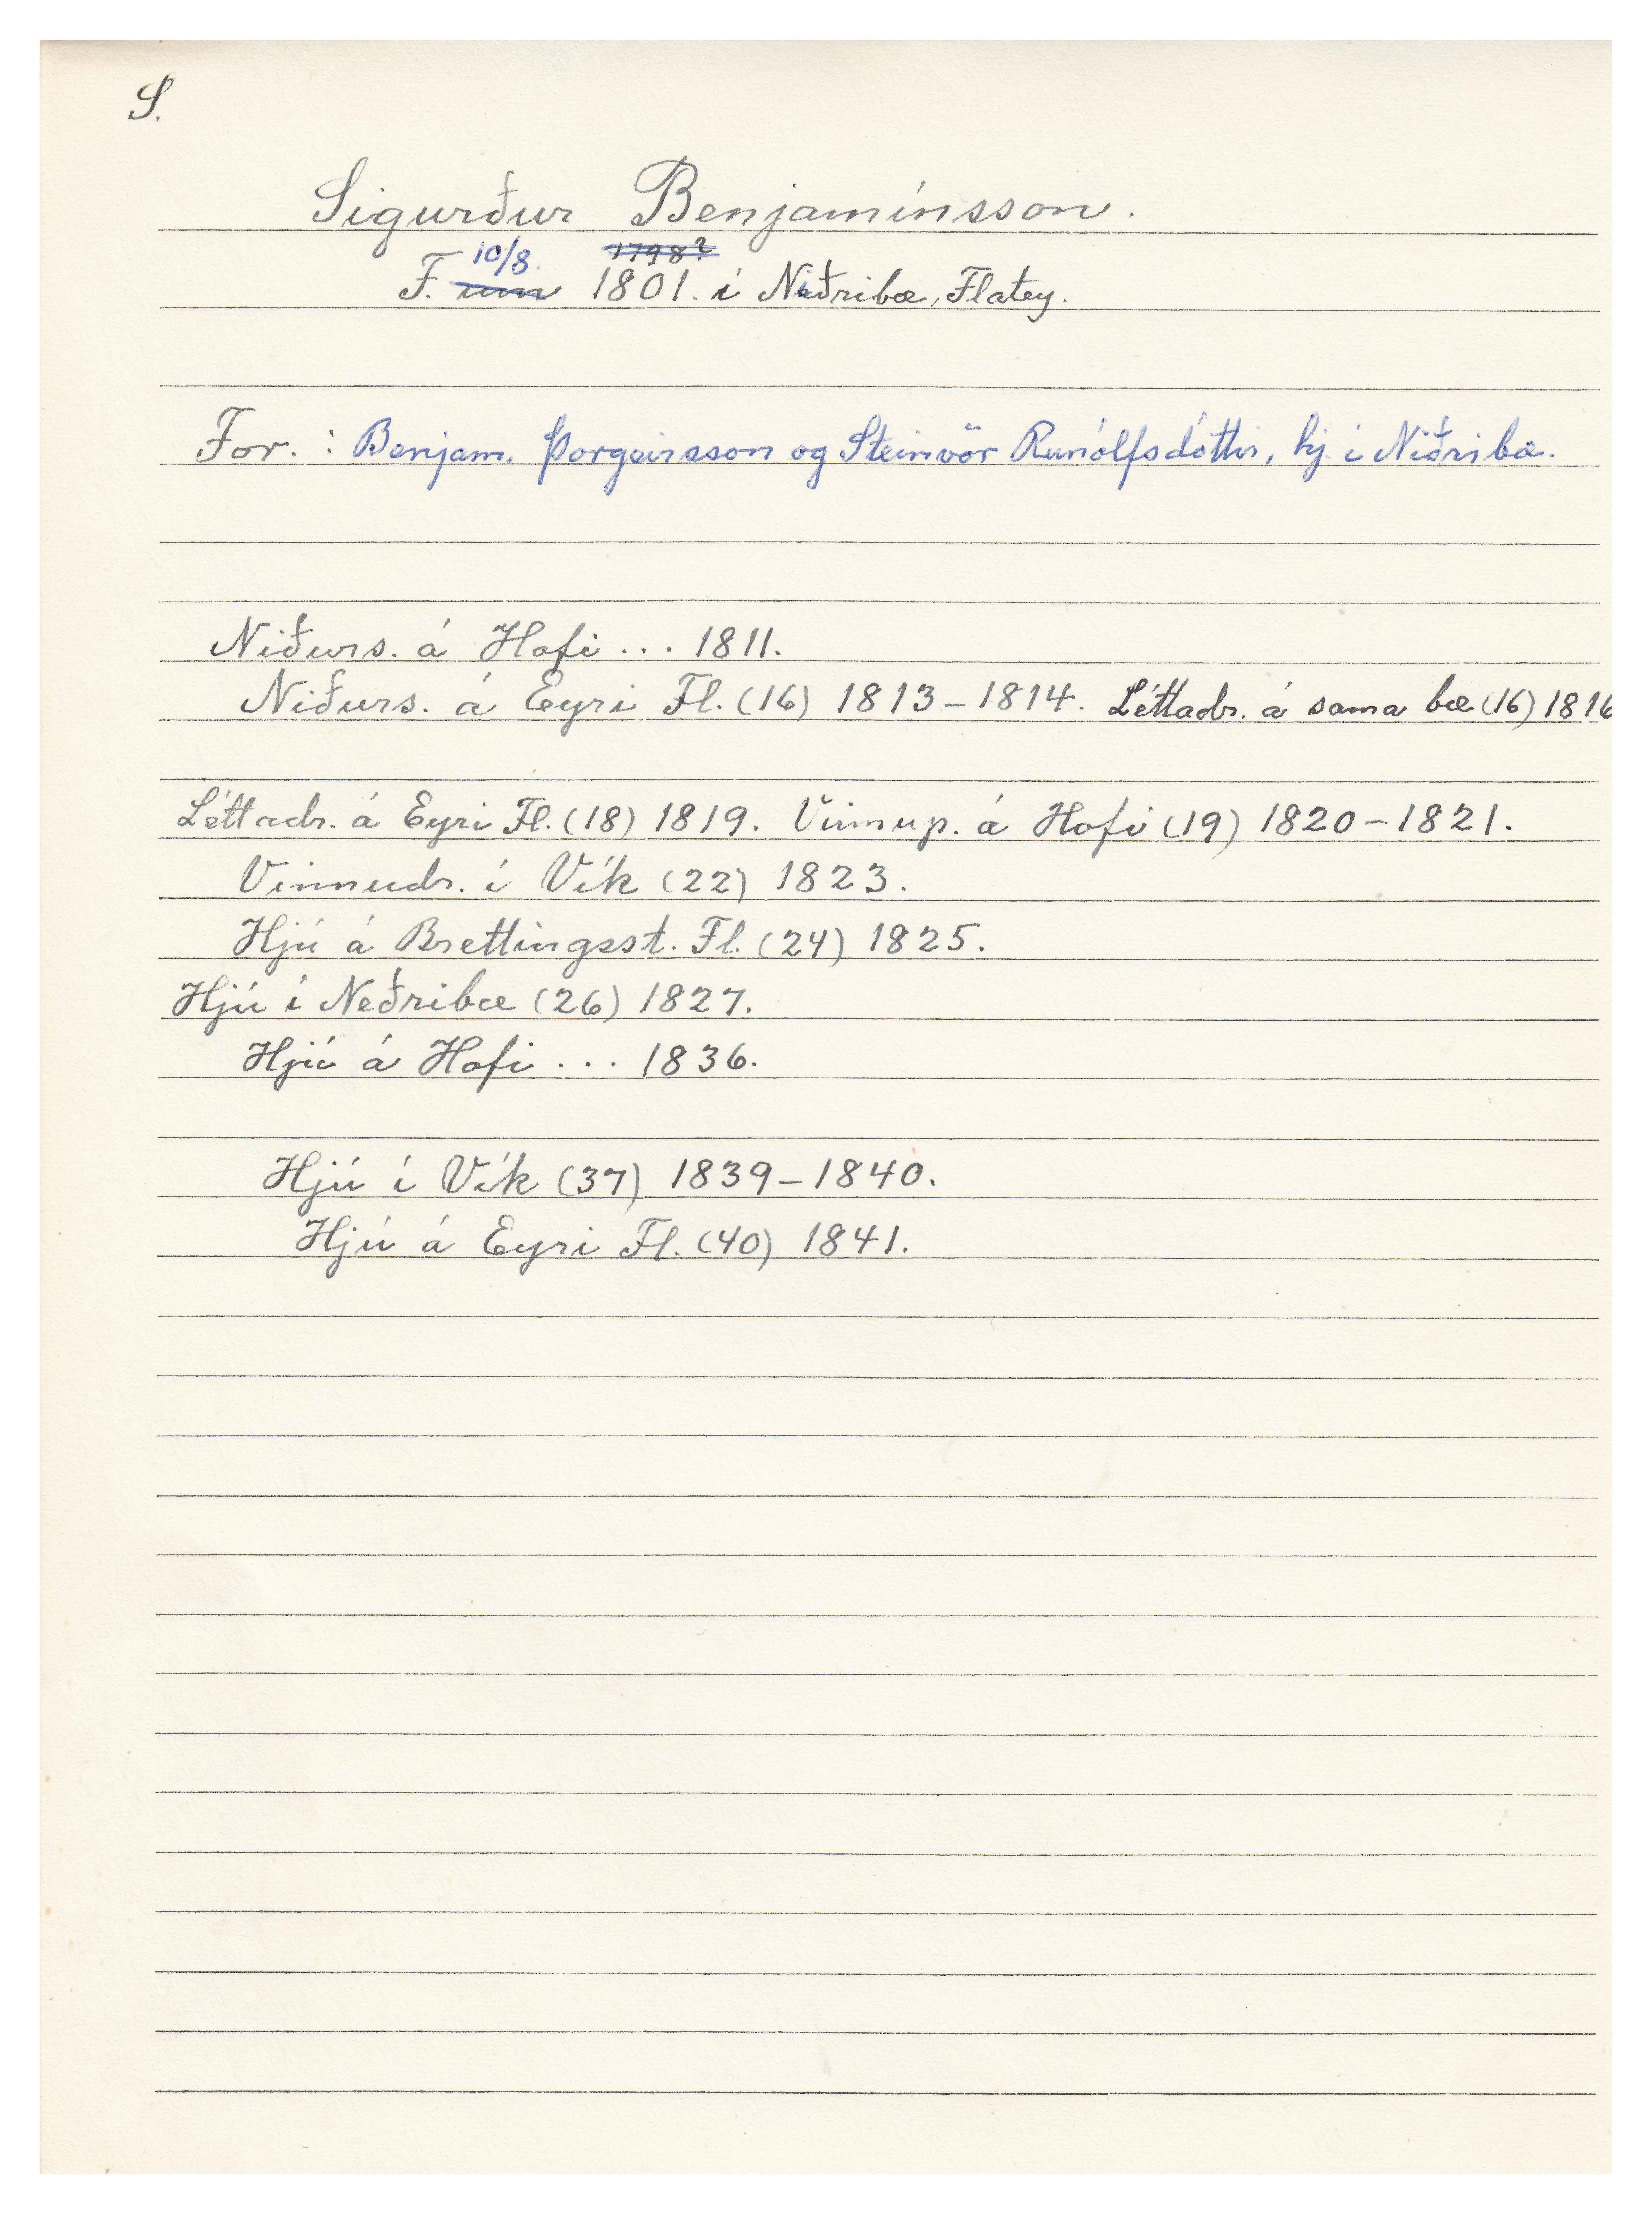 S.
Sigurður Benjamínsson.
10/8. 1798?
F. um 1801. í Niðribæ, Flatey.
For. : Benjam. Þorgeirsson og Steinvör Runólfsdóttir, hj í Niðribæ.
Niðurs. á Hofi... 1811.
Niðurs. á Eyri Fl. (16) 1813-1814. Léttadr. á sama bæ (16) 1816
Léttadr. á Eyri Fl. (18) 1819. Vinnup. á Hofi (19) 1820-1821.
Vinnudr. í Vík (22) 1823.
Hjú á Brettingsst. Fl. (24) 1825.
Hjú í Neðribæ (26) 1827.
Hjú á Hofi... 1836.
Hjú í Vík (37) 1839-1840.
Hjú á Eyri Fl. (40) 1841.